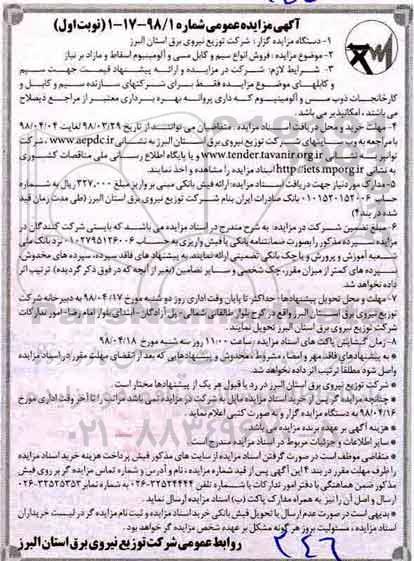 آگهی مزایده عمومی شماره ۹۸/۱-۱۷-۱ (نوبت اول)
۱- دستگاه مزایده گزار: شرکت توزیع نیروی برق استان البرز
۲- موضوع مزایده: فروش انواع سیم و کابل مسی و آلومینیوم اسقاط و مازاد بر نیاز
۳- شرایط لازم: شرکت در مزایده و ارائه پیشنهاد قیمت جهت سیم و کابلهای موضوع مزایده فقط برای شرکتهای سازنده سیم و کابل و
کارخانجات ذوب مسی و آلومینیوم که دارای پروانه بهره برداری معتبر از مراجع ذیصلاح می باشند، امکانپذیر می باشد.
۴- مهلت خرید و محل دریافت اسناد مزایده: متقاضیان می توانند از تاریخ ۹۸/۰۳/۲۹ لغایت ۹۸/۰۴/۰۴
با مراجعه به وب سایتهای شرکت توزیع نیروی برق استان البرز به نشانی www.aepdc.ir، شرکت
توانیر به نشانی www.tender.tavanir.org.ir و یا پایگاه اطلاع رسانی ملی مناقصات کشوری
به نشانی http://iets.mporg.ir اسناد مزایده را مشاهده و اخذ نمایند.
۵- مدارک مورد نیاز جهت دریافت اسناد مزایده: ارائه فیش بانکی مبنی بر واریز مبلغ ۳۲۷,۰۰۰ ریال به شماره
حساب ۰۱۰۱۵۳۰۱۵۲۰۰۶ بانک صادرات ایران بنام شرکت توزیع نیروی برق استان البرز (طی مدت زمان قید
شده در بند۴)
۶- مبلغ تضمین شرکت در مزایده: به شرح مندرج در اسناد مزایده می باشد که بایستی شرکت کنندگان در
مزایده سپرده مذکور را بصورت ضمانتنامه بانکی یا فیش واریزی به حساب ۰۱۰۲۷۹۵۱۲۶۰۰۶ نزد بانک ملی
شعبه آموزش و پرورش و یا چک بانکی تضمینی ارائه نمایند. به پیشنهاد های فاقد سپرده، سپرده های مخدوش،
سپرده های کمتر از میزان مقرر، چک شخصی و سایر تضامین (بغیر از آنچه که در فوق ذکر گردیده) ترتیب اثر
داده نخواهد شد.
۷- مهلت و محل تحویل پیشنهادها: حداکثر تا پایان وقت اداری روز دو شنبه مورخ ۹۸/۰۴/۱۷ به دبیرخانه شرکت
توزیع نیروی برق استان البرز واقع در کرج بلوار طالقانی شمالی- پل آزادگان - ابتدای بلوار امام رضا- امور تدارکات
شرکت توزیع نیروی برق استان البرز تحویل نمایند.
۸- زمان گشایش پاکت های اسناد مزایده: ساعت ۱۱:۰۰ روز سه شنبه مورخ ۹۸/۰۴/۱۸
* به پیشنهادهای فاقد مهر و امضاء، مشروط، مخدوش و پیشنهادهایی که بعد از انقضای مهلت مقرر در اسناد مزایده
واصل شود مطلقا ترتیب اثر داده نخواهد شد.
* شرکت توزیع نیروی برق استان البرز در رد یا قبول هر یک از پیشنهادها مختار است.
* چنانچه مزایده گر پس از خرید اسناد مزایده مایل به شرکت در مزایده نمی باشد مراتب را تا آخر وقت اداری مورخ
۹۸/۰۴/۱۶ به دستگاه مزایده گزار و به صورت کتبی اعلام نماید.
* هزینه آگهی بر عهده برنده مزایده می باشد.
* سایر اطلاعات و جزئیات مربوط در اسناد مزایده مندرج است.
* متقاضی موظف است در صورت گرفتن اسناد مزایده از سایت های مذکور فیش پرداخت هزینه خرید اسناد مزایده
را ظرف مهلت مقرر در بند ۴ این آگهی پس از قید شماره مزایده، نام و آدرس و شماره تماس مزایده گر بر روی فیش
مذکور ضمن هماهنگی با دفتر امور تدارکات با شماره تلفن ۳۲۵۲۴۴۴۴-۰۲۶ به شماره نمابر ۳۲۵۲۵۳۵۳-۰۲۶
ارسال و اصل آن را نیز به همراه مدارک پاکت (ب) اسناد مزایده ارسال نماید.
* بدیهی است در صورت عدم ارسال یا تحویل فیش بانکی خرید اسناد مزایده و ثبت نام مزایده گر در لیست خریداران
اسناد مزایده، مسئولیت بروز هر گونه مشکل بر عهده شخص مزایده گر خواهد بود.
روابط عمومی شرکت توزیع نیروی برق استان البرز
۲۴۶
۰۲۱-۸۸۳۴۹۶۷۰